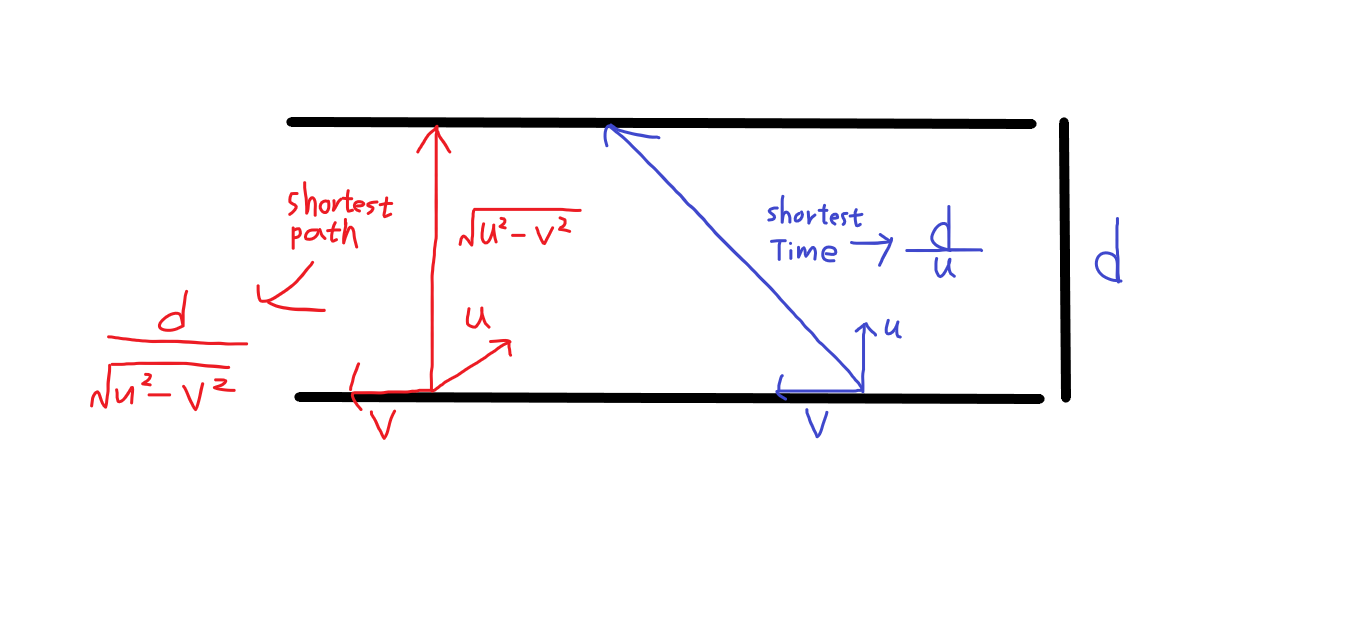 shortest
path
d
√u²-v²
√u²-v²
u
v
shortest
Time → d
u
u
v
d